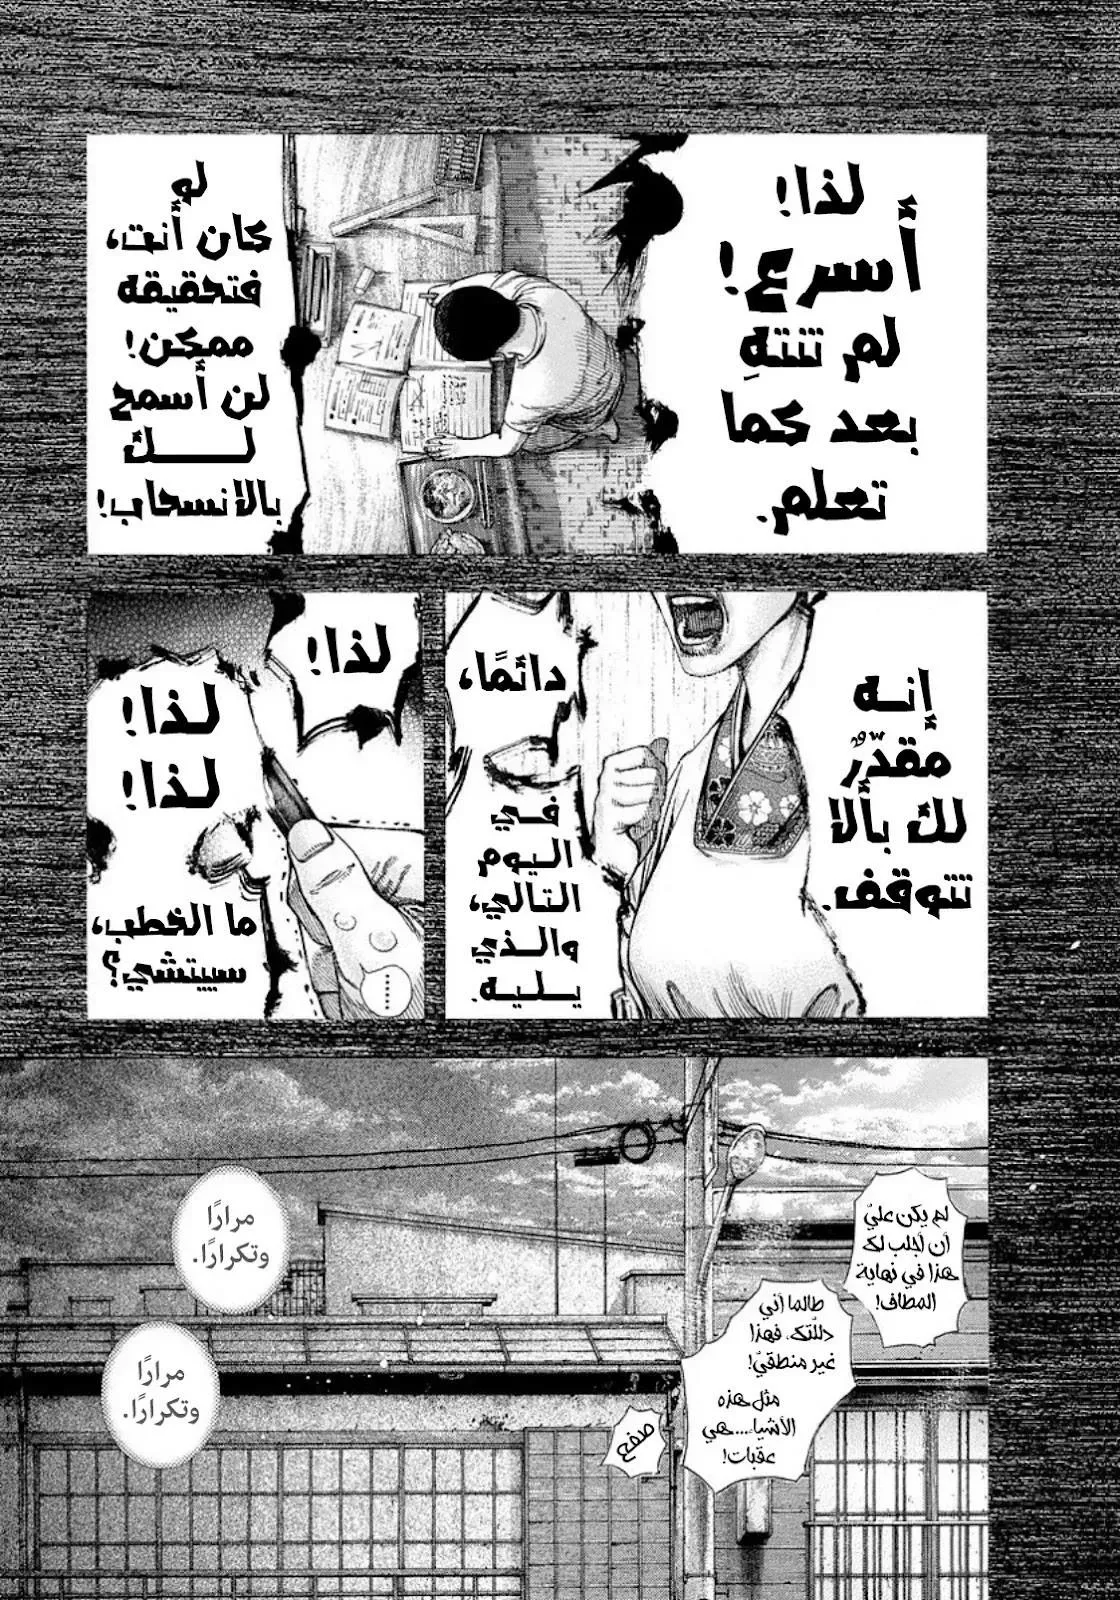 لذا!
أسرع!
لم تنتهِ
بعد كما
تعلم.
لو
كان أنت،
فتحقيقه
ممكن!
لن أسمح
لك
بالانسحاب!
إنه
مقدّرٌ
لك بألا
تتوقف.
دائمًا،
في
اليوم
التالي،
والذي
يليه.
لذا!
لذا!
لذا!
ما الخطب،
سييتشي؟
......
لم يكن عليّ
أن أجلب لك
هذا في نهاية
المطاف!
طالما أنني
دللّتك، فهذا
غير منطقيّ!
مثل هذه
الأشياء....هي
عقبات!
صفع
مرارًا
وتكرارًا.
مرارًا
وتكرارًا.